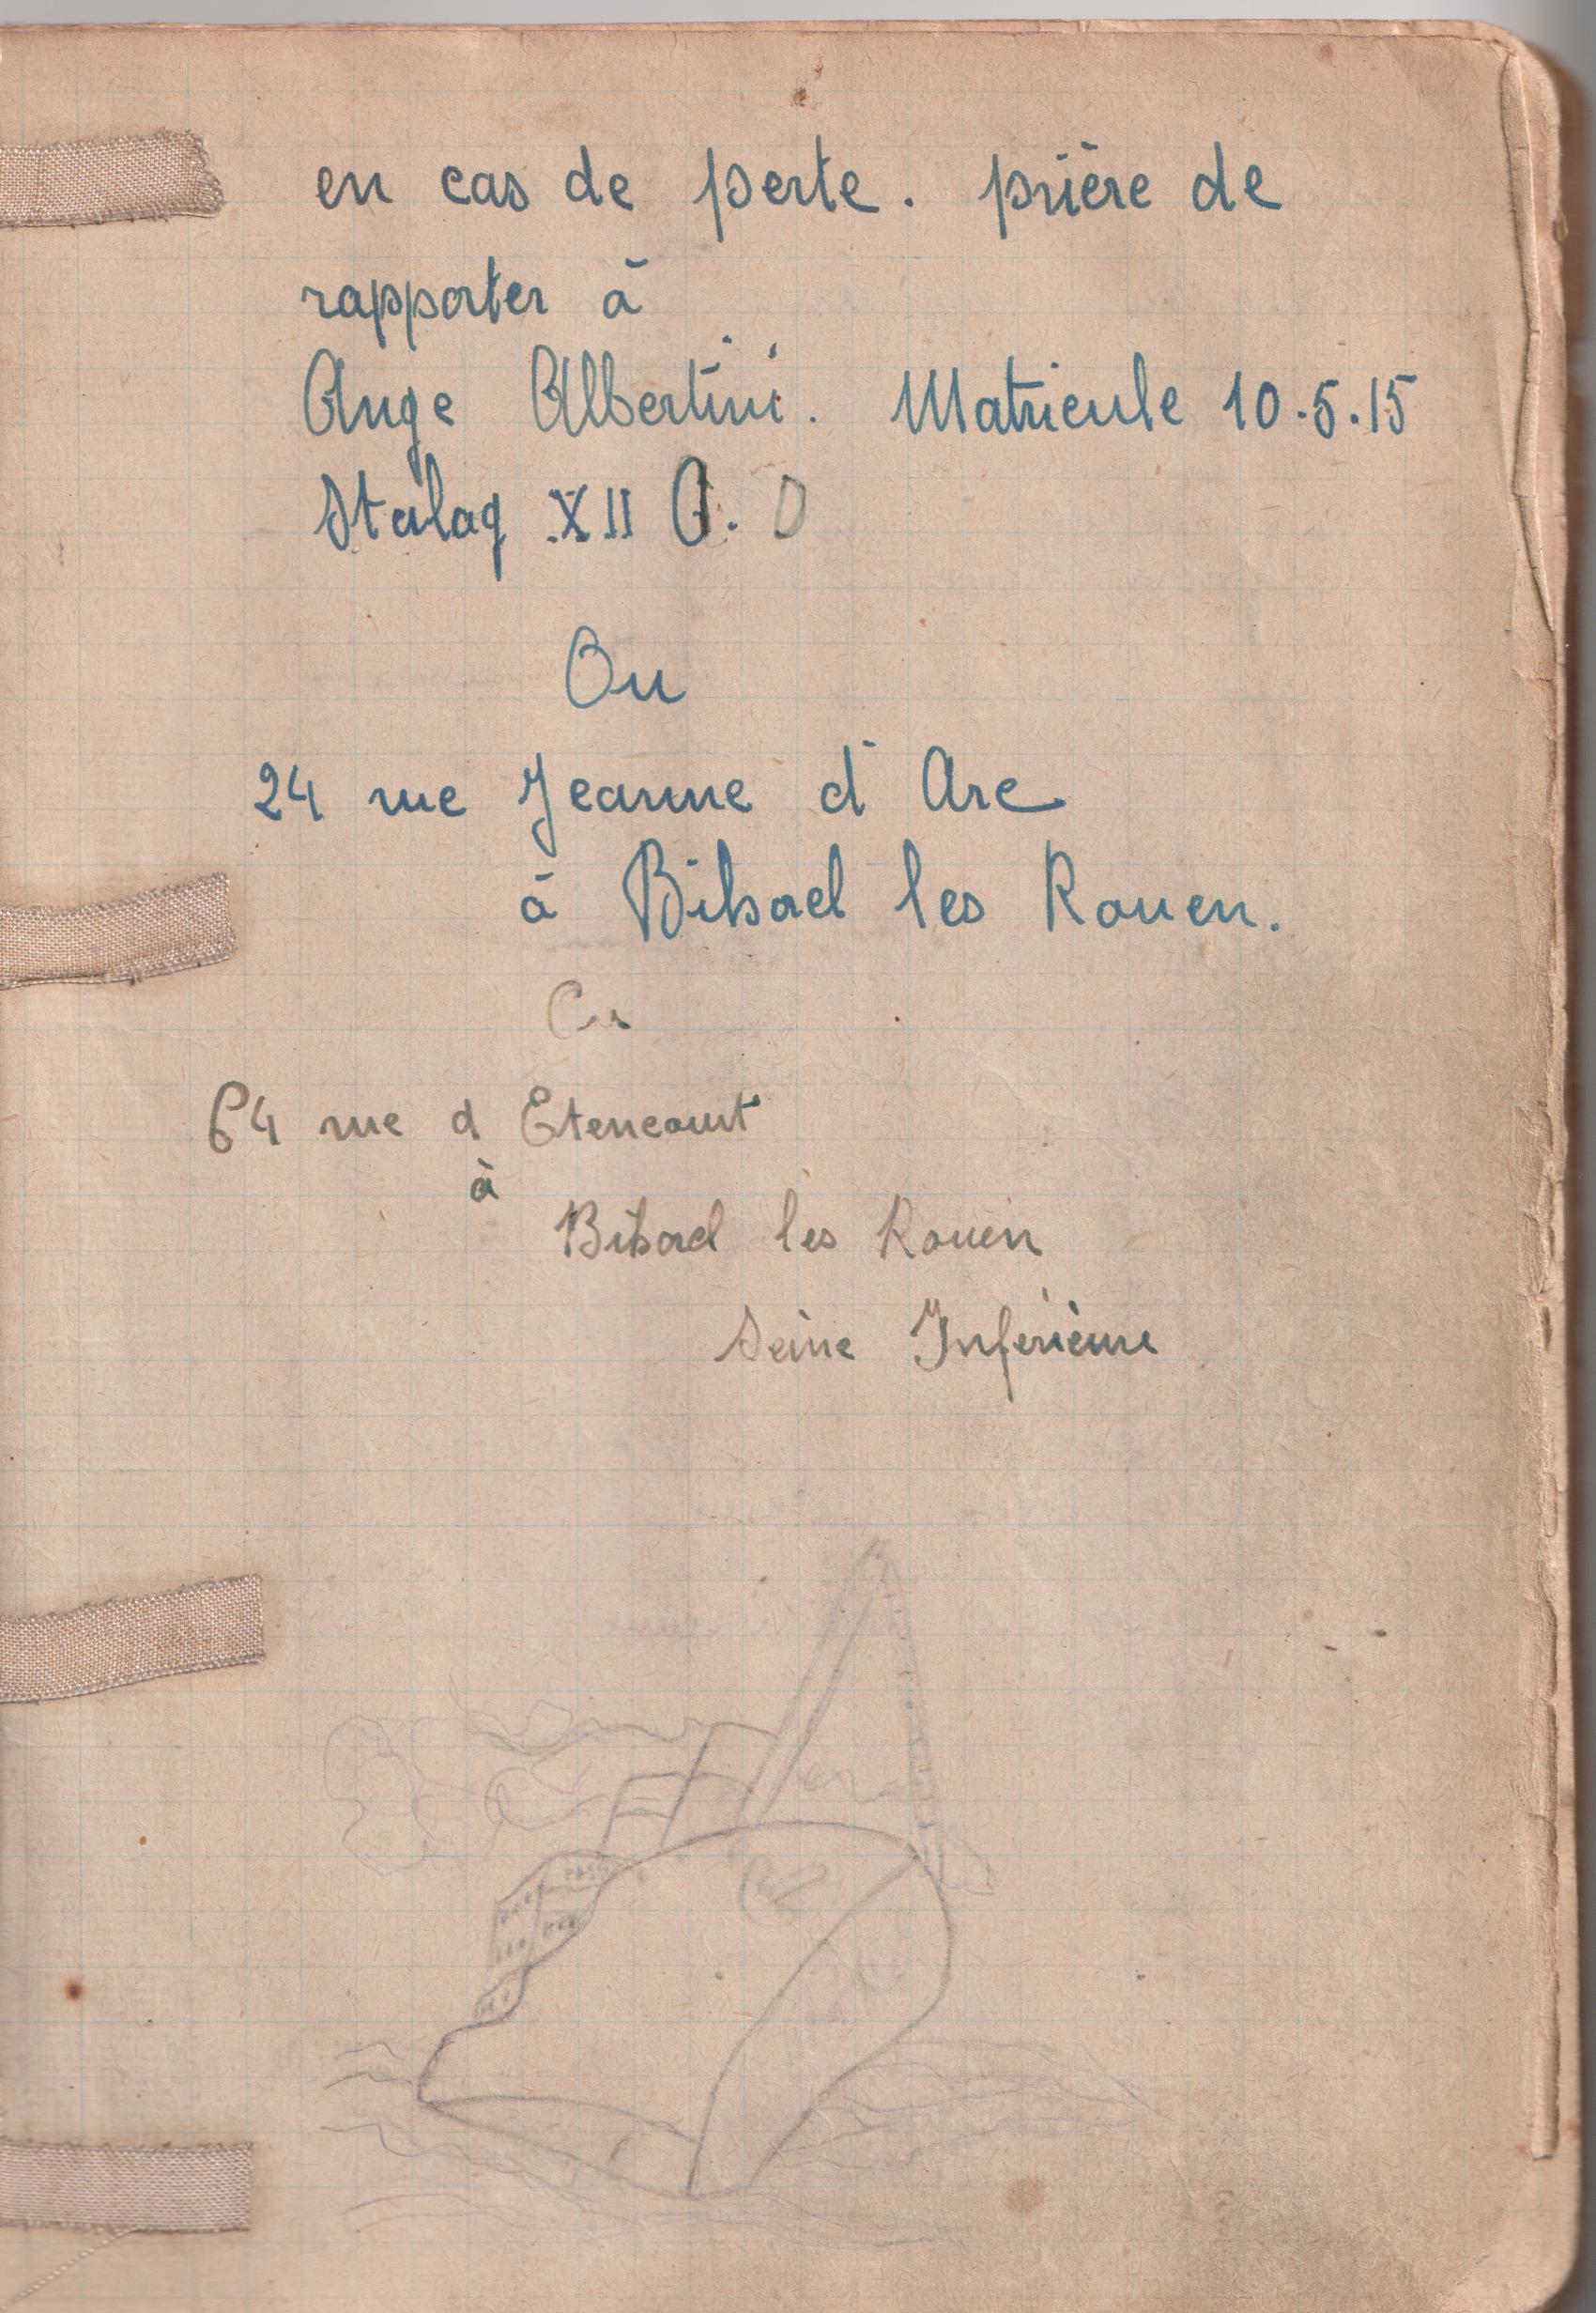 en cas de perte. prière de
rapporter à
Ange Albertini. Matricule 10.5.15
Stalag XII D
Ou
24 rue Jeanne d'Arc
à Bihorel les Rouen.
Ou
64 rue d Etencourt
à
Bihorel les Rouen
Seine Inférieure